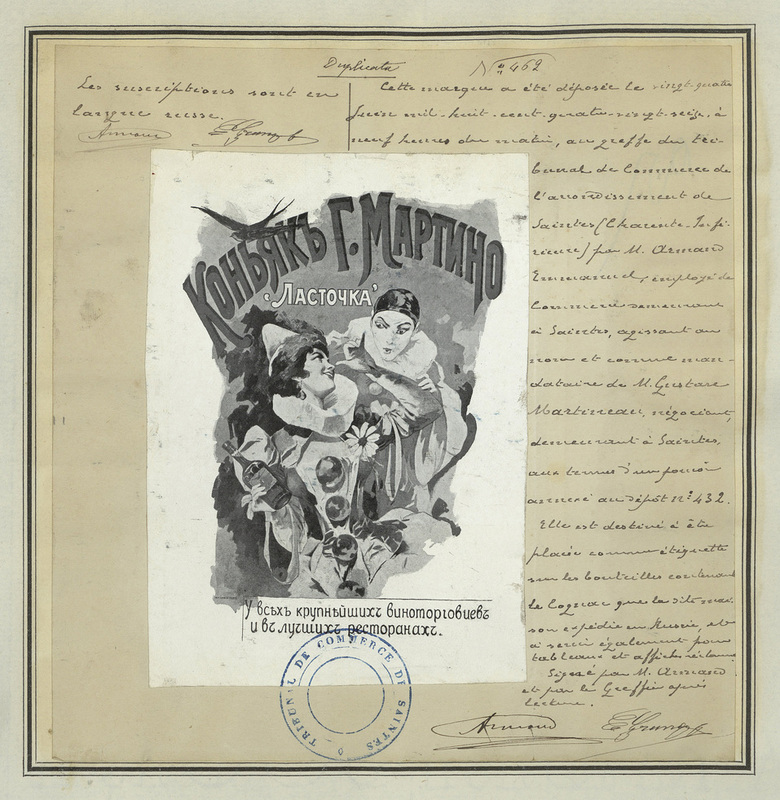 Duplicata
Nº 462
Les suscriptions sont en
langue russe.
Armand
Cette marque a été déposée le vingt-quatre
Juin mil-huit-cent-quatre-vingt-seize, à
neuf heures du matin, au greffe du tri-
bunal de Commerce de
l'arrondissement de
Saintes (Charente-Infé-
rieure) par M. Armand
Emmanuel, employé de
Commerce demeurant
à Saintes, agissant au
nom et comme man-
dataire de M. Gustave
Martineau, négociant,
demeurant à Saintes,
aux termes d'un pouvoir
annexé au dépôt nº 432.
Elle est destinée à être
placée comme étiquette
sur les bouteilles contenant
le Cognac que la dite mai-
son expédie en Russie, et
à servir également pour
tableaux et affiches réclame.
Signé par M. Armand
et par le Greffier après
lecture.
Armand
КОНЬЯКЪ Г. МАРТИНО
„ЛАСТОЧКА"
У всѣхъ крупнѣйшихъ виноторговцевъ
и въ лучшихъ ресторанахъ.
TRIBUNAL DE COMMERCE DE SAINTES